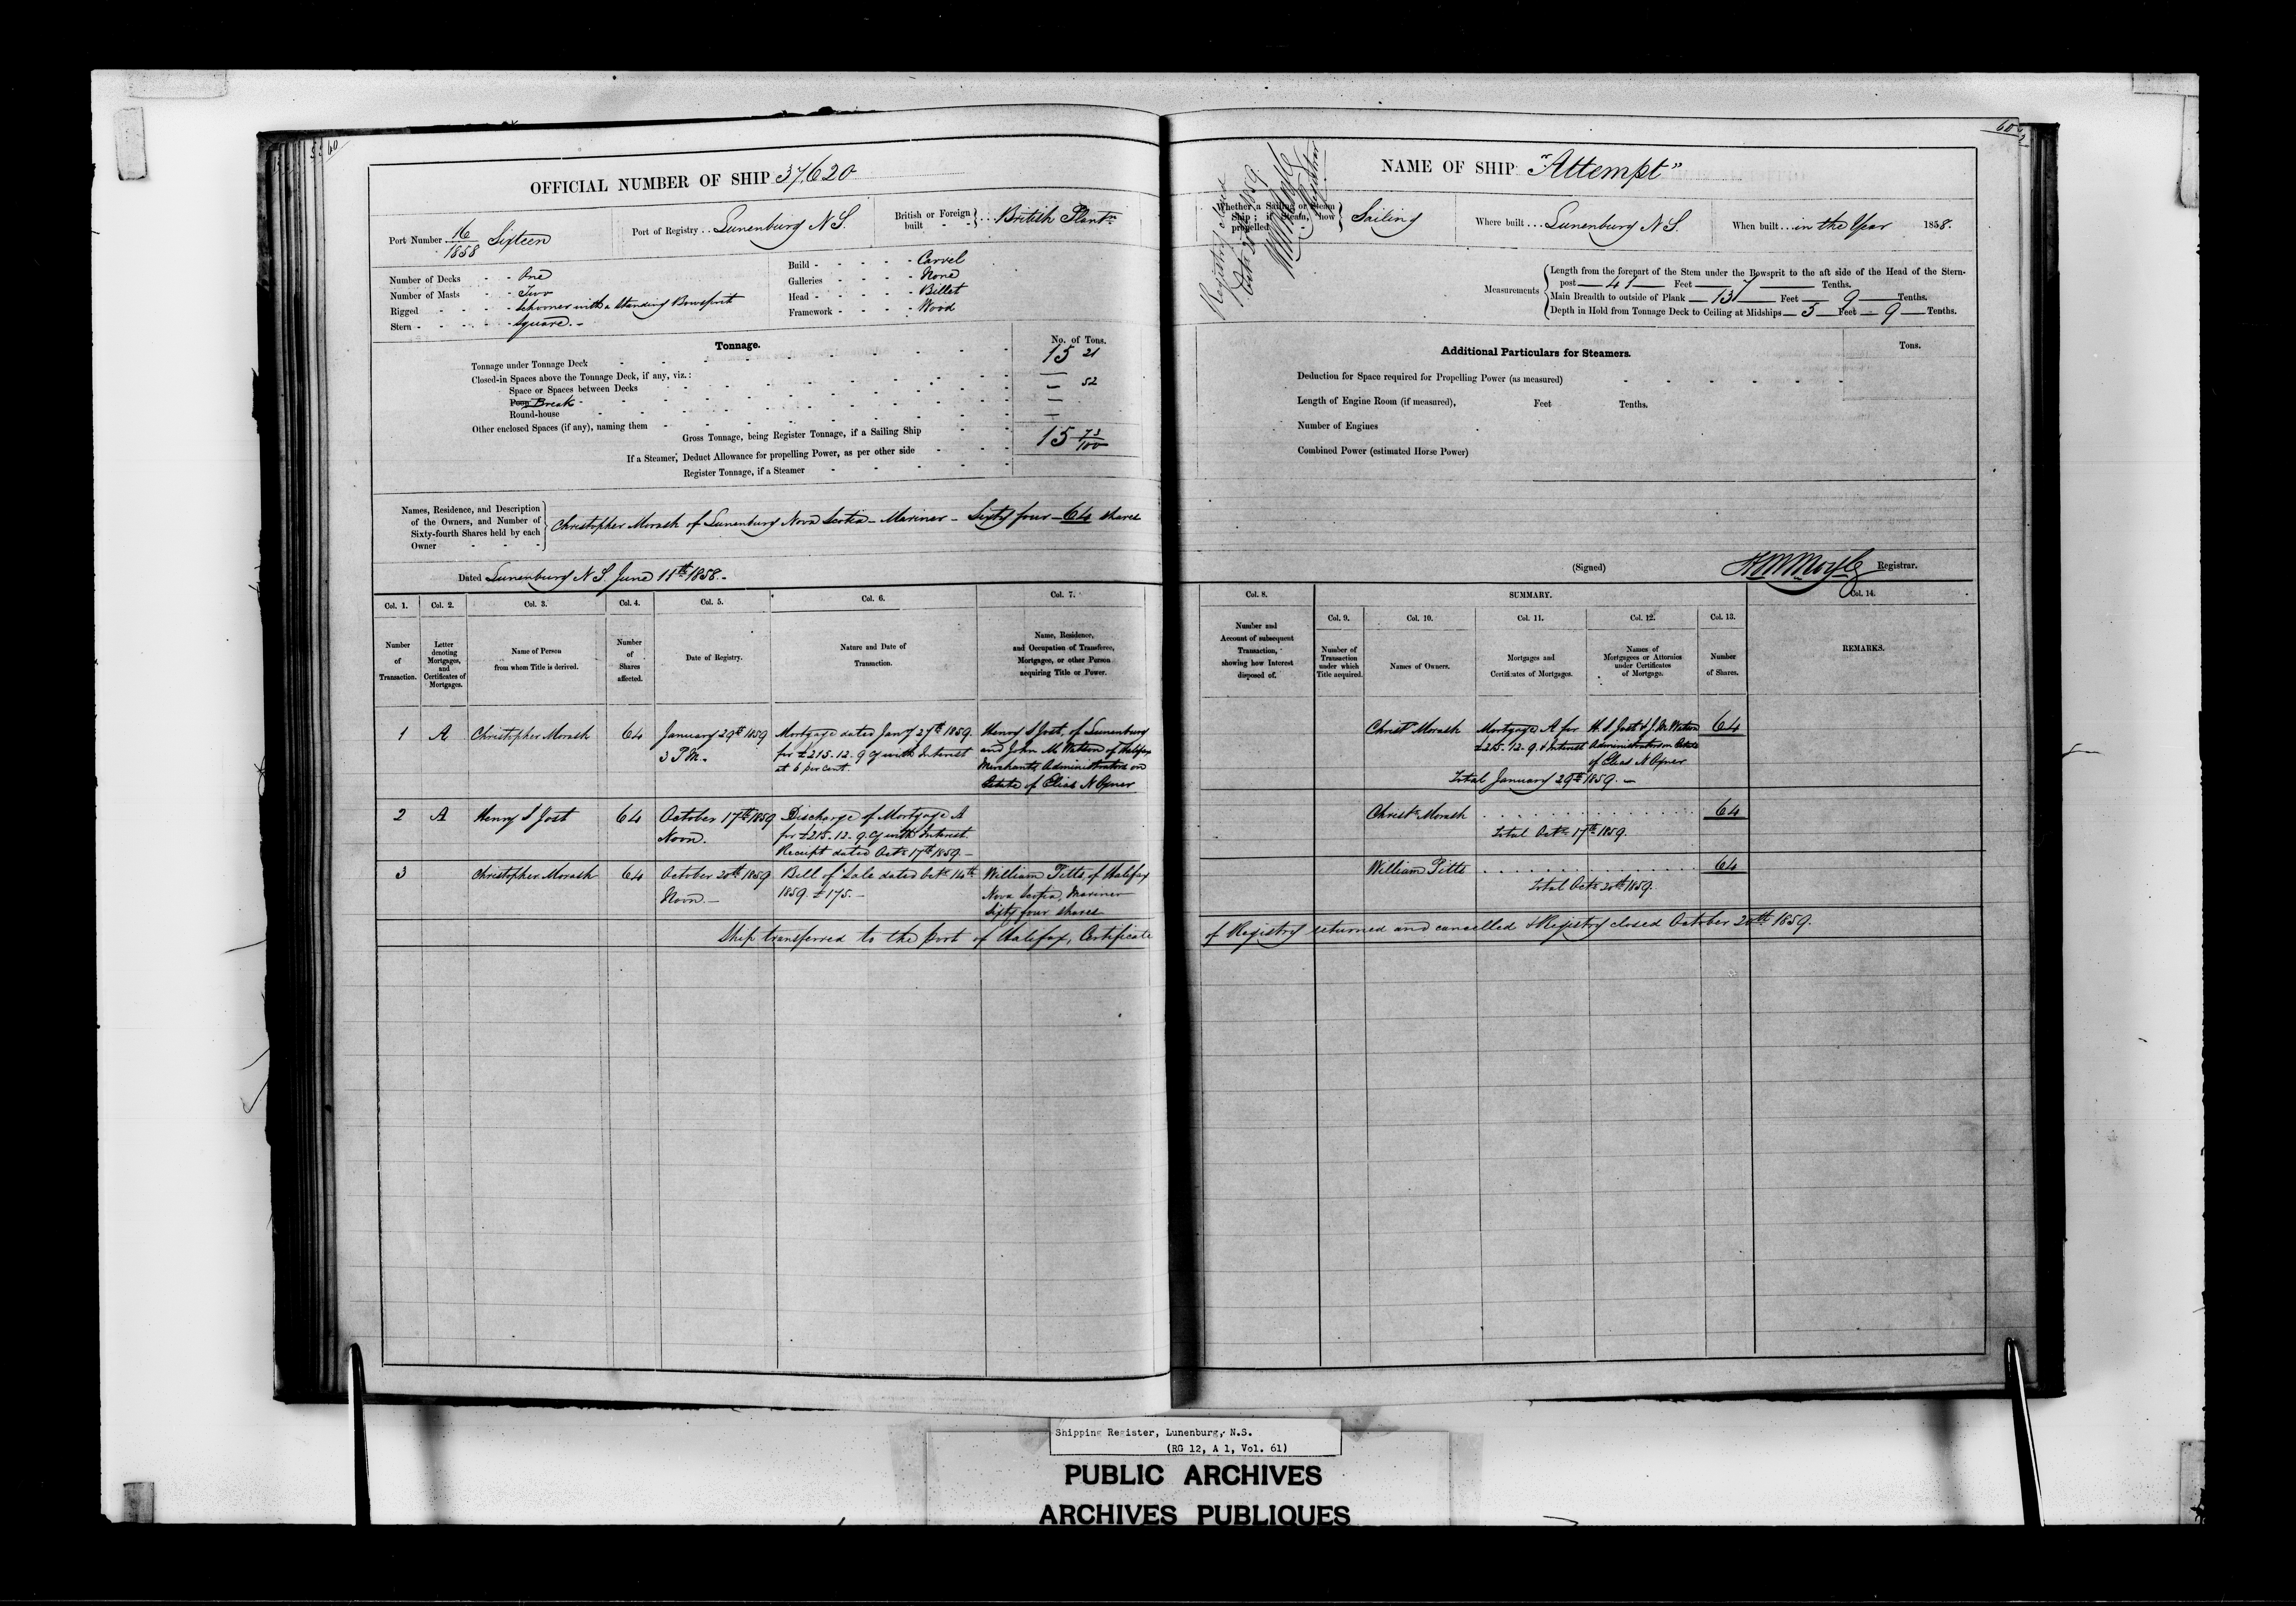 60
OFFICIAL NUMBER OF SHIP 37,620
Port Number 16/1858 Sixteen
Port of Registry . . Lunenburg N S.
British or Foreign built - - } . . . British Plantn
Number of Decks - - One
Number of Masts - - Two
Rigged - - - Schooner with a standing Bowsprit
Stern - - - - - Square. -
Build - - - - - Carvel
Galleries - - - - None
Head - - - - - Billet
Framework - - - - Wood
Tonnage.
No. of Tons.
Tonnage under Tonnage Deck 15 21
Closed-in Spaces above the Tonnage Deck, if any, viz.:
Space or Spaces between Decks —
Poop Break — 52
Round-house —
Other enclosed Spaces (if any), naming them —
Gross Tonnage, being Register Tonnage, if a Sailing Ship 15 73/100
If a Steamer, Deduct Allowance for propelling Power, as per other side
Register Tonnage, if a Steamer
Names, Residence, and Description
of the Owners, and Number of
Sixty-fourth Shares held by each
Owner - - -
Christopher Morash of Lunenburg Nova Scotia - Mariner - Sixty four - 64 shares
Dated Lunenburg N S. June 11th 1858. -
Col. 1.
Number
of
Transaction.
Col. 2.
Letter
denoting
Mortgages,
and
Certificates of
Mortgages.
Col. 3.
Name of Person
from whom Title is derived.
Col. 4.
Number
of
Shares
affected.
Col. 5.
Date of Registry.
Col. 6.
Nature and Date of
Transaction.
Col. 7.
Name, Residence,
and Occupation of Transferee,
Mortgagee, or other Person
acquiring Title or Power.
1 A Christopher Morash 64
January 29th 1859
3 P M.
Mortgage dated Jany 27th 1859.
for £215.12.9 Cy with Interest
at 6 per cent.
Henry S Jost, of Lunenburg
and John M Watson of Halifax
Merchants, Administrators on
Estate of Elias N
2 A Henry S Jost 64
October 17th 1859
Noon.
Discharge of Mortgage A
for £215.12.9. Cy with Interest.
Receipt dated Octr 17th 1859. -
3 Christopher Morash 64
October 20th 1859
Noon. -
Bill of Sale dated Octr 14th
1859. £175. -
William Pitts, of Halifax
Nova Scotia, Mariner
Sixty four shares
Ship transferred to the port of Halifax, Certificate
60
NAME OF SHIP "Attempt"
Registry closed
Whether a Sailing or Steam
Ship; if Steam, how
propelled
Sailing
Where built . . . Lunenburg N S.
When built . . . in the Year 1858.
Measurements
Length from the forepart of the Stem under the Bowsprit to the aft side of the Head of the Stern-
post — 41 — Feet — 7 — Tenths.
Main Breadth to outside of Plank — 13 — Feet — 9 — Tenths.
Depth in Hold from Tonnage Deck to Ceiling at Midships — 5 — Feet — 9 — Tenths.
Additional Particulars for Steamers.
Tons.
Deduction for Space required for Propelling Power (as measured)
Length of Engine Room (if measured), Feet Tenths.
Number of Engines
Combined Power (estimated Horse Power)
(Signed) Registrar.
Col. 8.
Number and
Account of subsequent
Transaction,
showing how Interest
disposed of.
SUMMARY.
Col. 9.
Number of
Transaction
under which
Title acquired.
Col. 10.
Names of Owners.
Col. 11.
Mortgages and
Certificates of Mortgages.
Col. 12.
Names of
Mortgagees or Attornies
under Certificates
of Mortgage.
Col. 13.
Number
of Shares.
Col. 14.
REMARKS.
Christr Morash
Mortgage A for
£215.12.9. & Interest
H. S Jost & J. M. Watson
Administrators on Estate
of Elias N
64
Total January 29th 1859. -
Christr Morash 64
Total Octr 17th 1859.
William Pitts 64
Total Octr 20th 1859.
of Registry returned and cancelled & Registry closed October 20th 1859.
Shipping Register, Lunenburg, N.S.
(RG 12, A 1, Vol. 61)
PUBLIC ARCHIVES
ARCHIVES PUBLIQUES